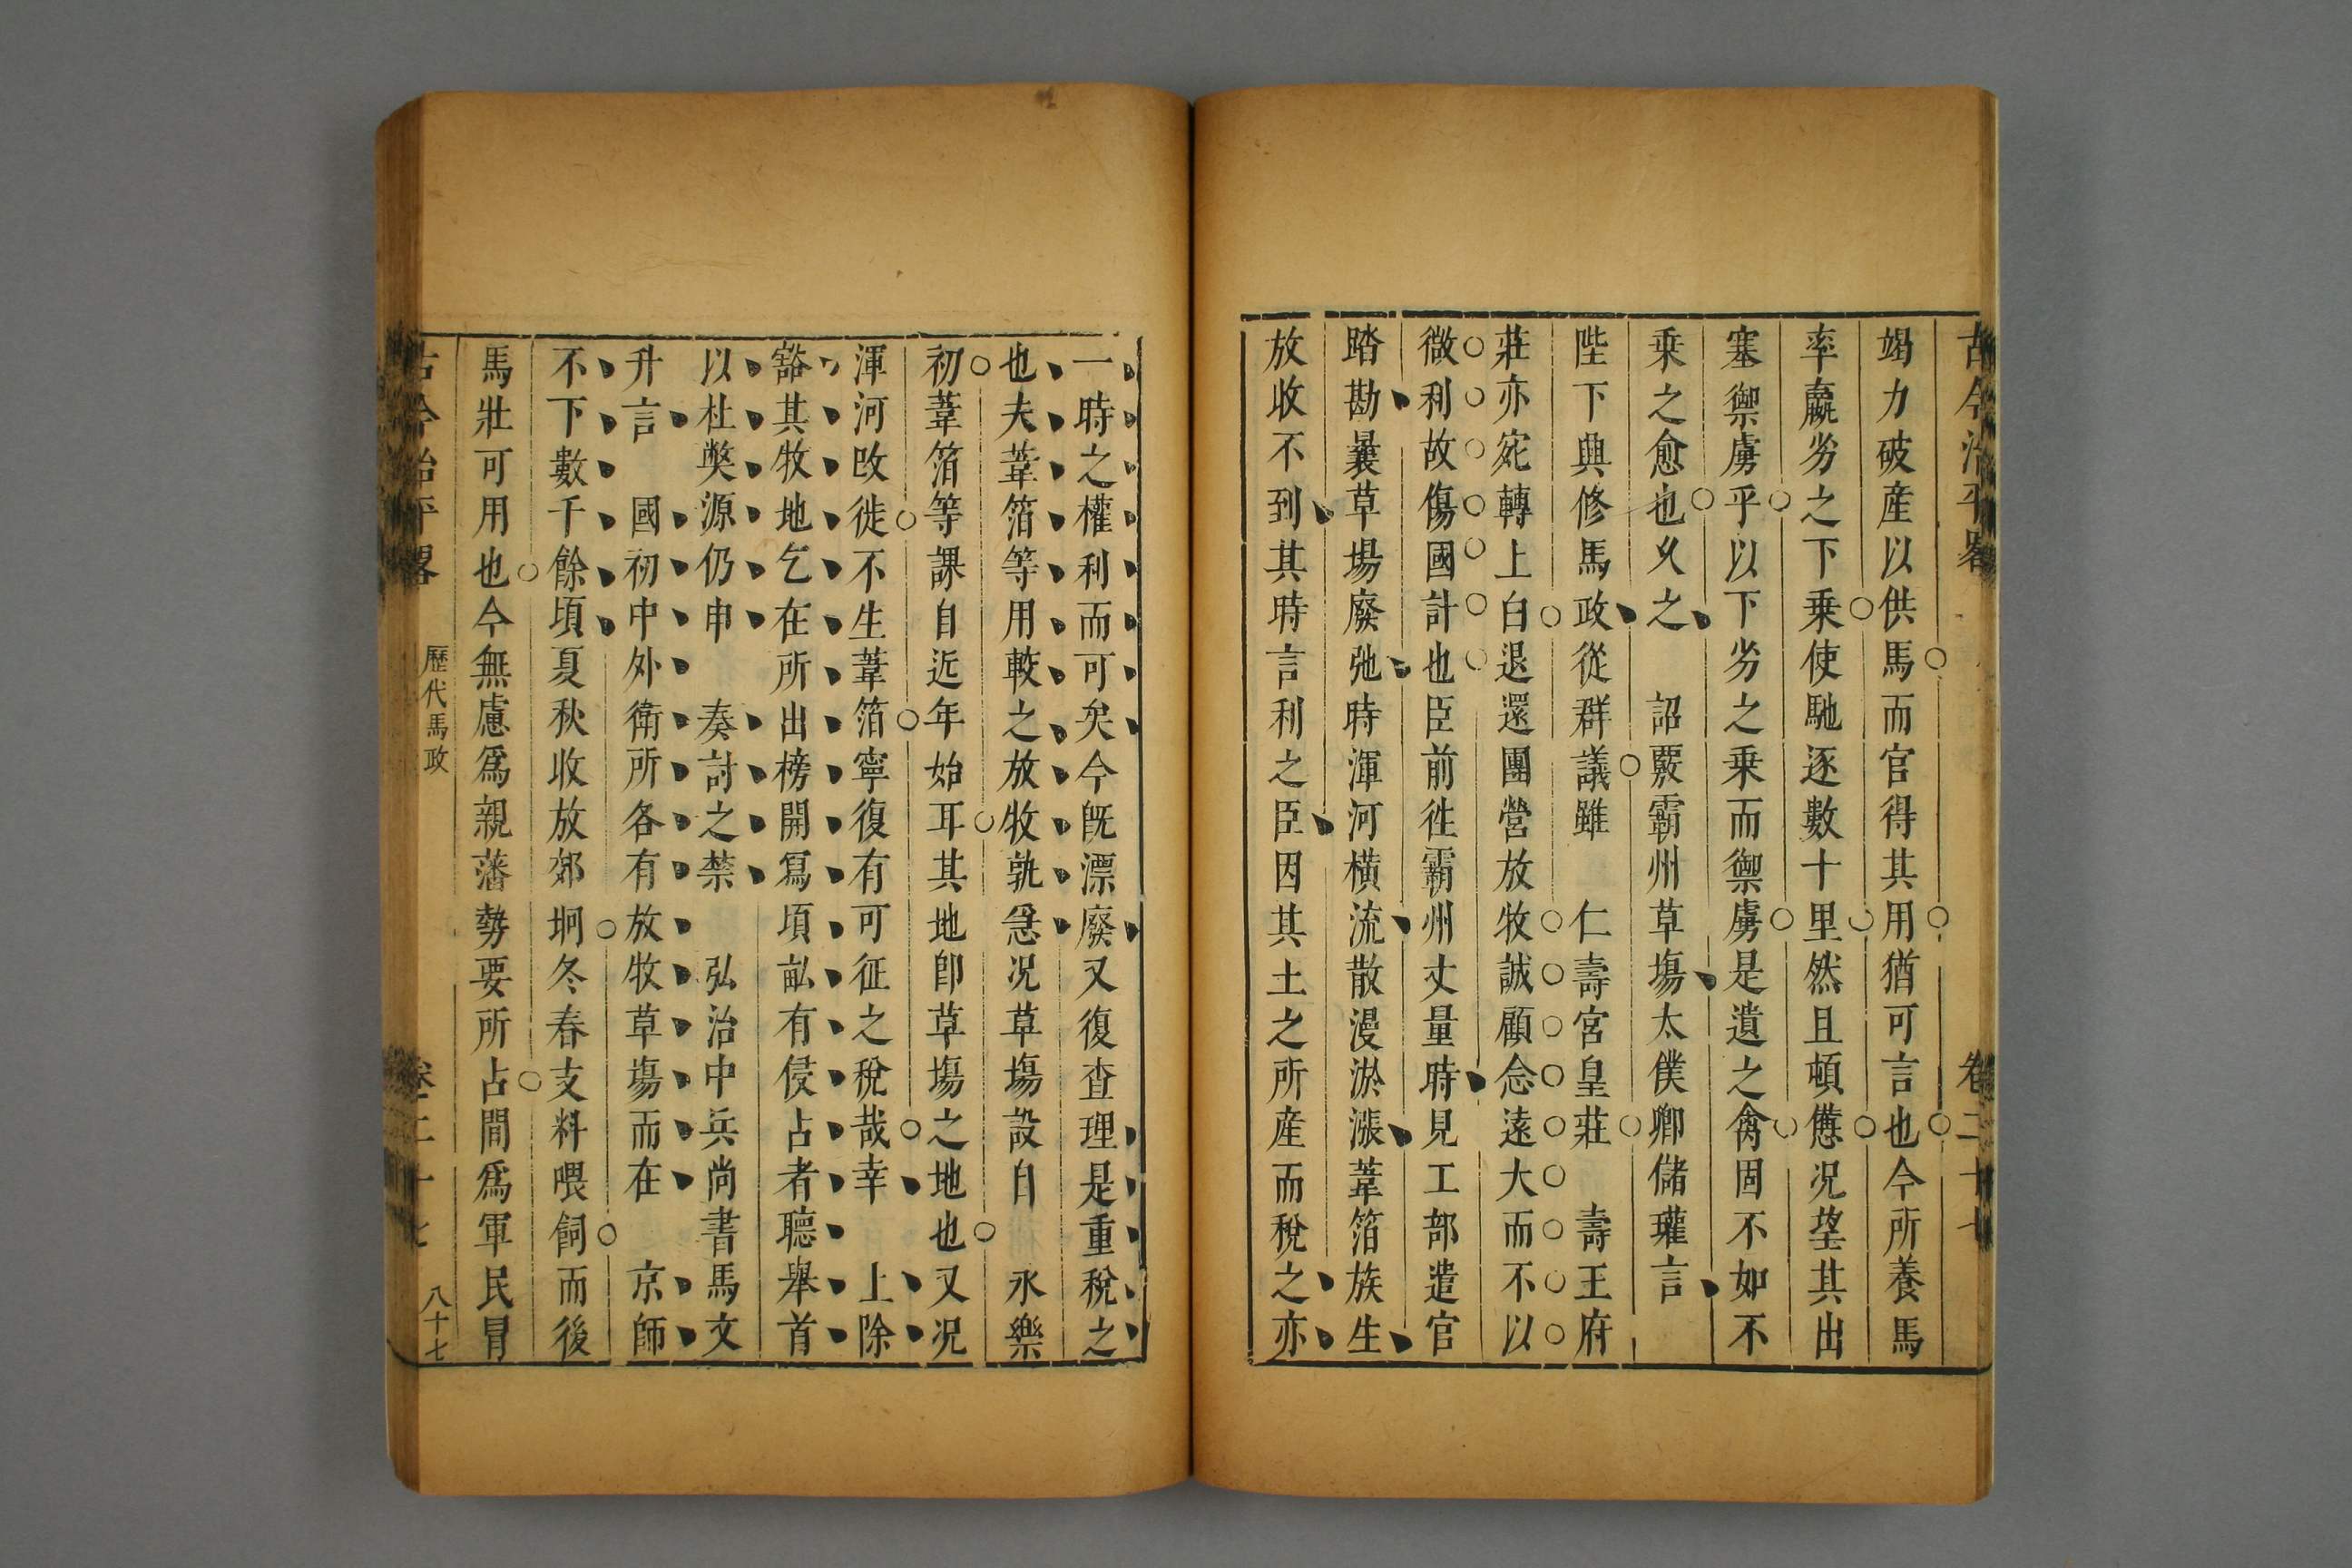 古今治平畧 卷二十七
竭力破産以供馬而官得其用猶可言也今所養馬
率羸劣之下乗使馳逐數十里然且頓憊况望其出
塞禦虜乎以下劣之乗而禦虜是遺之禽固不如不
乗之愈也乆之 詔覈霸州草塲太僕卿儲瓘言
陛下典修馬政從群議雖 仁壽宮皇莊 壽王府
莊亦宛轉上白退還團營放牧誠顧念遠大而不以
微利故傷國計也臣前徃霸州丈量時見工部遣官
踏勘曩草塲廢弛時渾河横流散漫淤漲葦箔族生
放收不到其時言利之臣因其土之所産而稅之亦
一時之權利而可矣今既漂廢又復查理是重稅之
也夫葦箔等用較之放牧孰急况草塲設自 永樂
初葦箔等課自近年始耳其地即草塲之地也又况
渾河改徙不生葦箔寧復有可征之稅哉幸 上除
豁其牧地乞在所出榜開寫頃畝有侵占者聽舉首
以杜獘源仍申 奏討之禁 弘治中兵尚書馬文
升言 國初中外衛所各有放牧草塲而在 京師
不下數千餘頃夏秋收放郊坰冬春支料喂飼而後
馬壯可用也今無慮爲親藩勢要所占間爲軍民冒
古今治平畧 歷代馬政 卷二十七 八十七